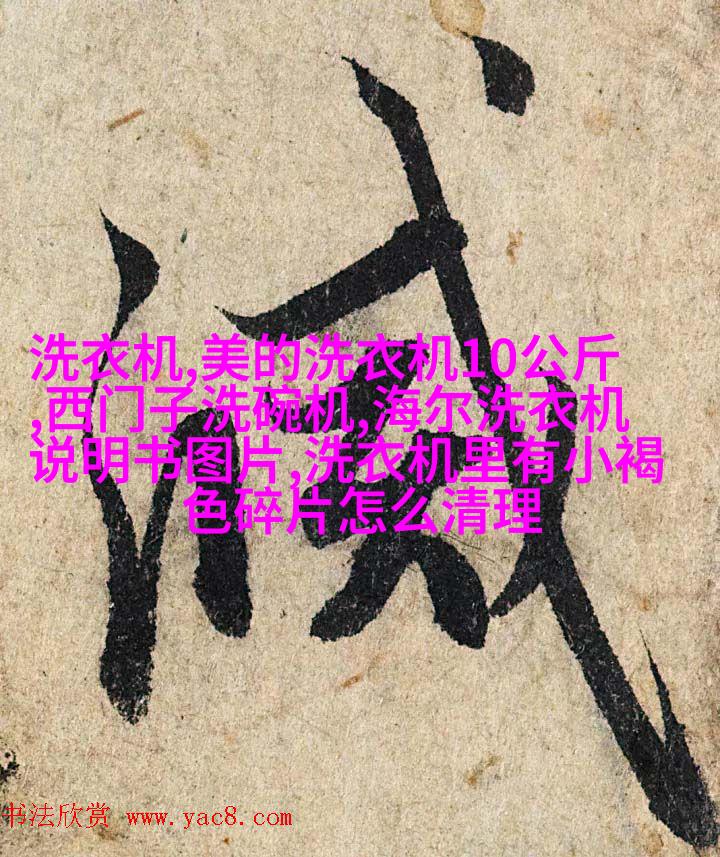 洗衣机,美的洗衣机10公斤
,西门子洗碗机,海尔洗衣机
说明书图片,洗衣机里有小褐
色碎片怎么清理
书法欣赏 www.yac8.com